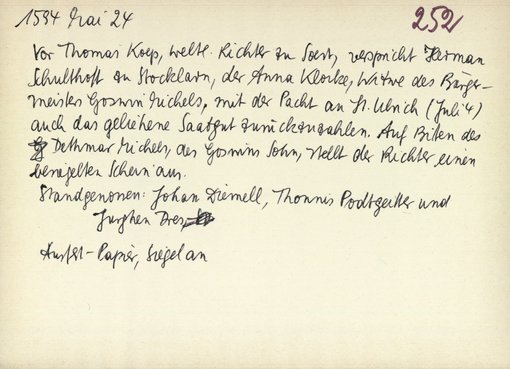 1594 Mai 24
252
Vor Thomas Koep, weltl. Richter zu Soest, verspricht Herman
Schulthoff zu Stocklarn, der Anna Klocke, Witwe des Bürger-
meisters Goswin Michels, mit der Pacht an St. Ulrich (Juli 4)
auch das geliehene Saatgut zurückzuzahlen. Auf Bitten des
Dethmar Michels, des Goswins Sohn, stellt der Richter einen
besiegelten Schein aus.
Standgenossen: Johan Diemell, Thonnis Podtgeiter und
Jurghen Dres
Ausfert-Papier, Siegel an